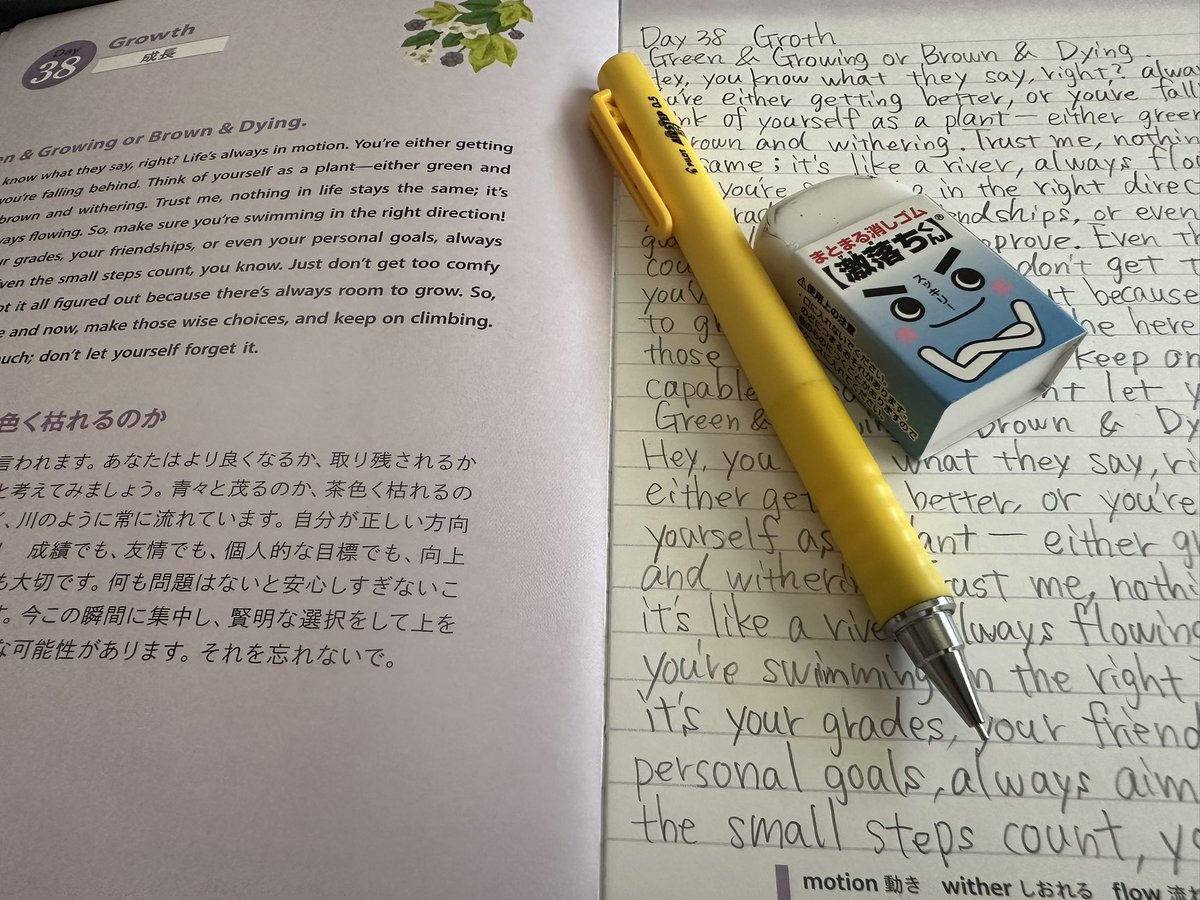 Day
38
Growth
成長
en & Growing or Brown & Dying.
know what they say, right? Life's always in motion. You're either getting
you're falling behind. Think of yourself as a plant—either green and
brown and withering. Trust me, nothing in life stays the same; it's
ways flowing. So, make sure you're swimming in the right direction!
ur grades, your friendships, or even your personal goals, always
ven the small steps count, you know. Just don't get too comfy
ot it all figured out because there's always room to grow. So,
e and now, make those wise choices, and keep on climbing.
uch; don't let yourself forget it.
色く枯れるのか
言われます。あなたはより良くなるか、取り残されるか
と考えてみましょう。青々と茂るのか、茶色く枯れるの
く、川のように常に流れています。自分が正しい方向
! 成績でも、友情でも、個人的な目標でも、向上
も大切です。何も問題はないと安心しすぎないこ
す。今この瞬間に集中し、賢明な選択をして上を
な可能性があります。それを忘れないで。
Day 38 Groth
Green & Growing or Brown & Dying.
Hey, you know what they say, right? alwa
u're either getting better, or you're fall
ink of yourself as a plant — either green
rown and withering. Trust me, nothin
same; it's like a river, always flow
you're in the right direc
grad endships, or even
prove. Even th
cou don't get t
you'v t because
to gr he here
those keep an
capable n't let y
Green & Brown & Dy
Hey, you what they say, ri
either get better, or you're
yourself as lant — either gr
and witherin rust me, nothi
it's like a rive lways flowing
you're swimming in the right
it's your grades, your friend
personal goals, always aim
the small steps count, yo
motion 動き wither しおれる flow 流れ
PILOT 0.5
まとまる消しゴム
【激落ちくん】®
ズッキュー
⚠使用上の注意
・口に入れないでください。